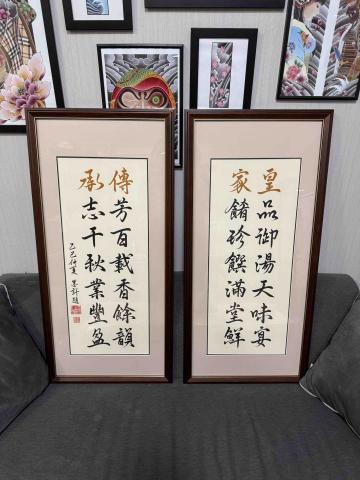 皇品御湯天味宴
家餚珍饌滿堂鮮
傳芳百載香餘韻
承志千秋業豐盈
乙巳仲夏 題